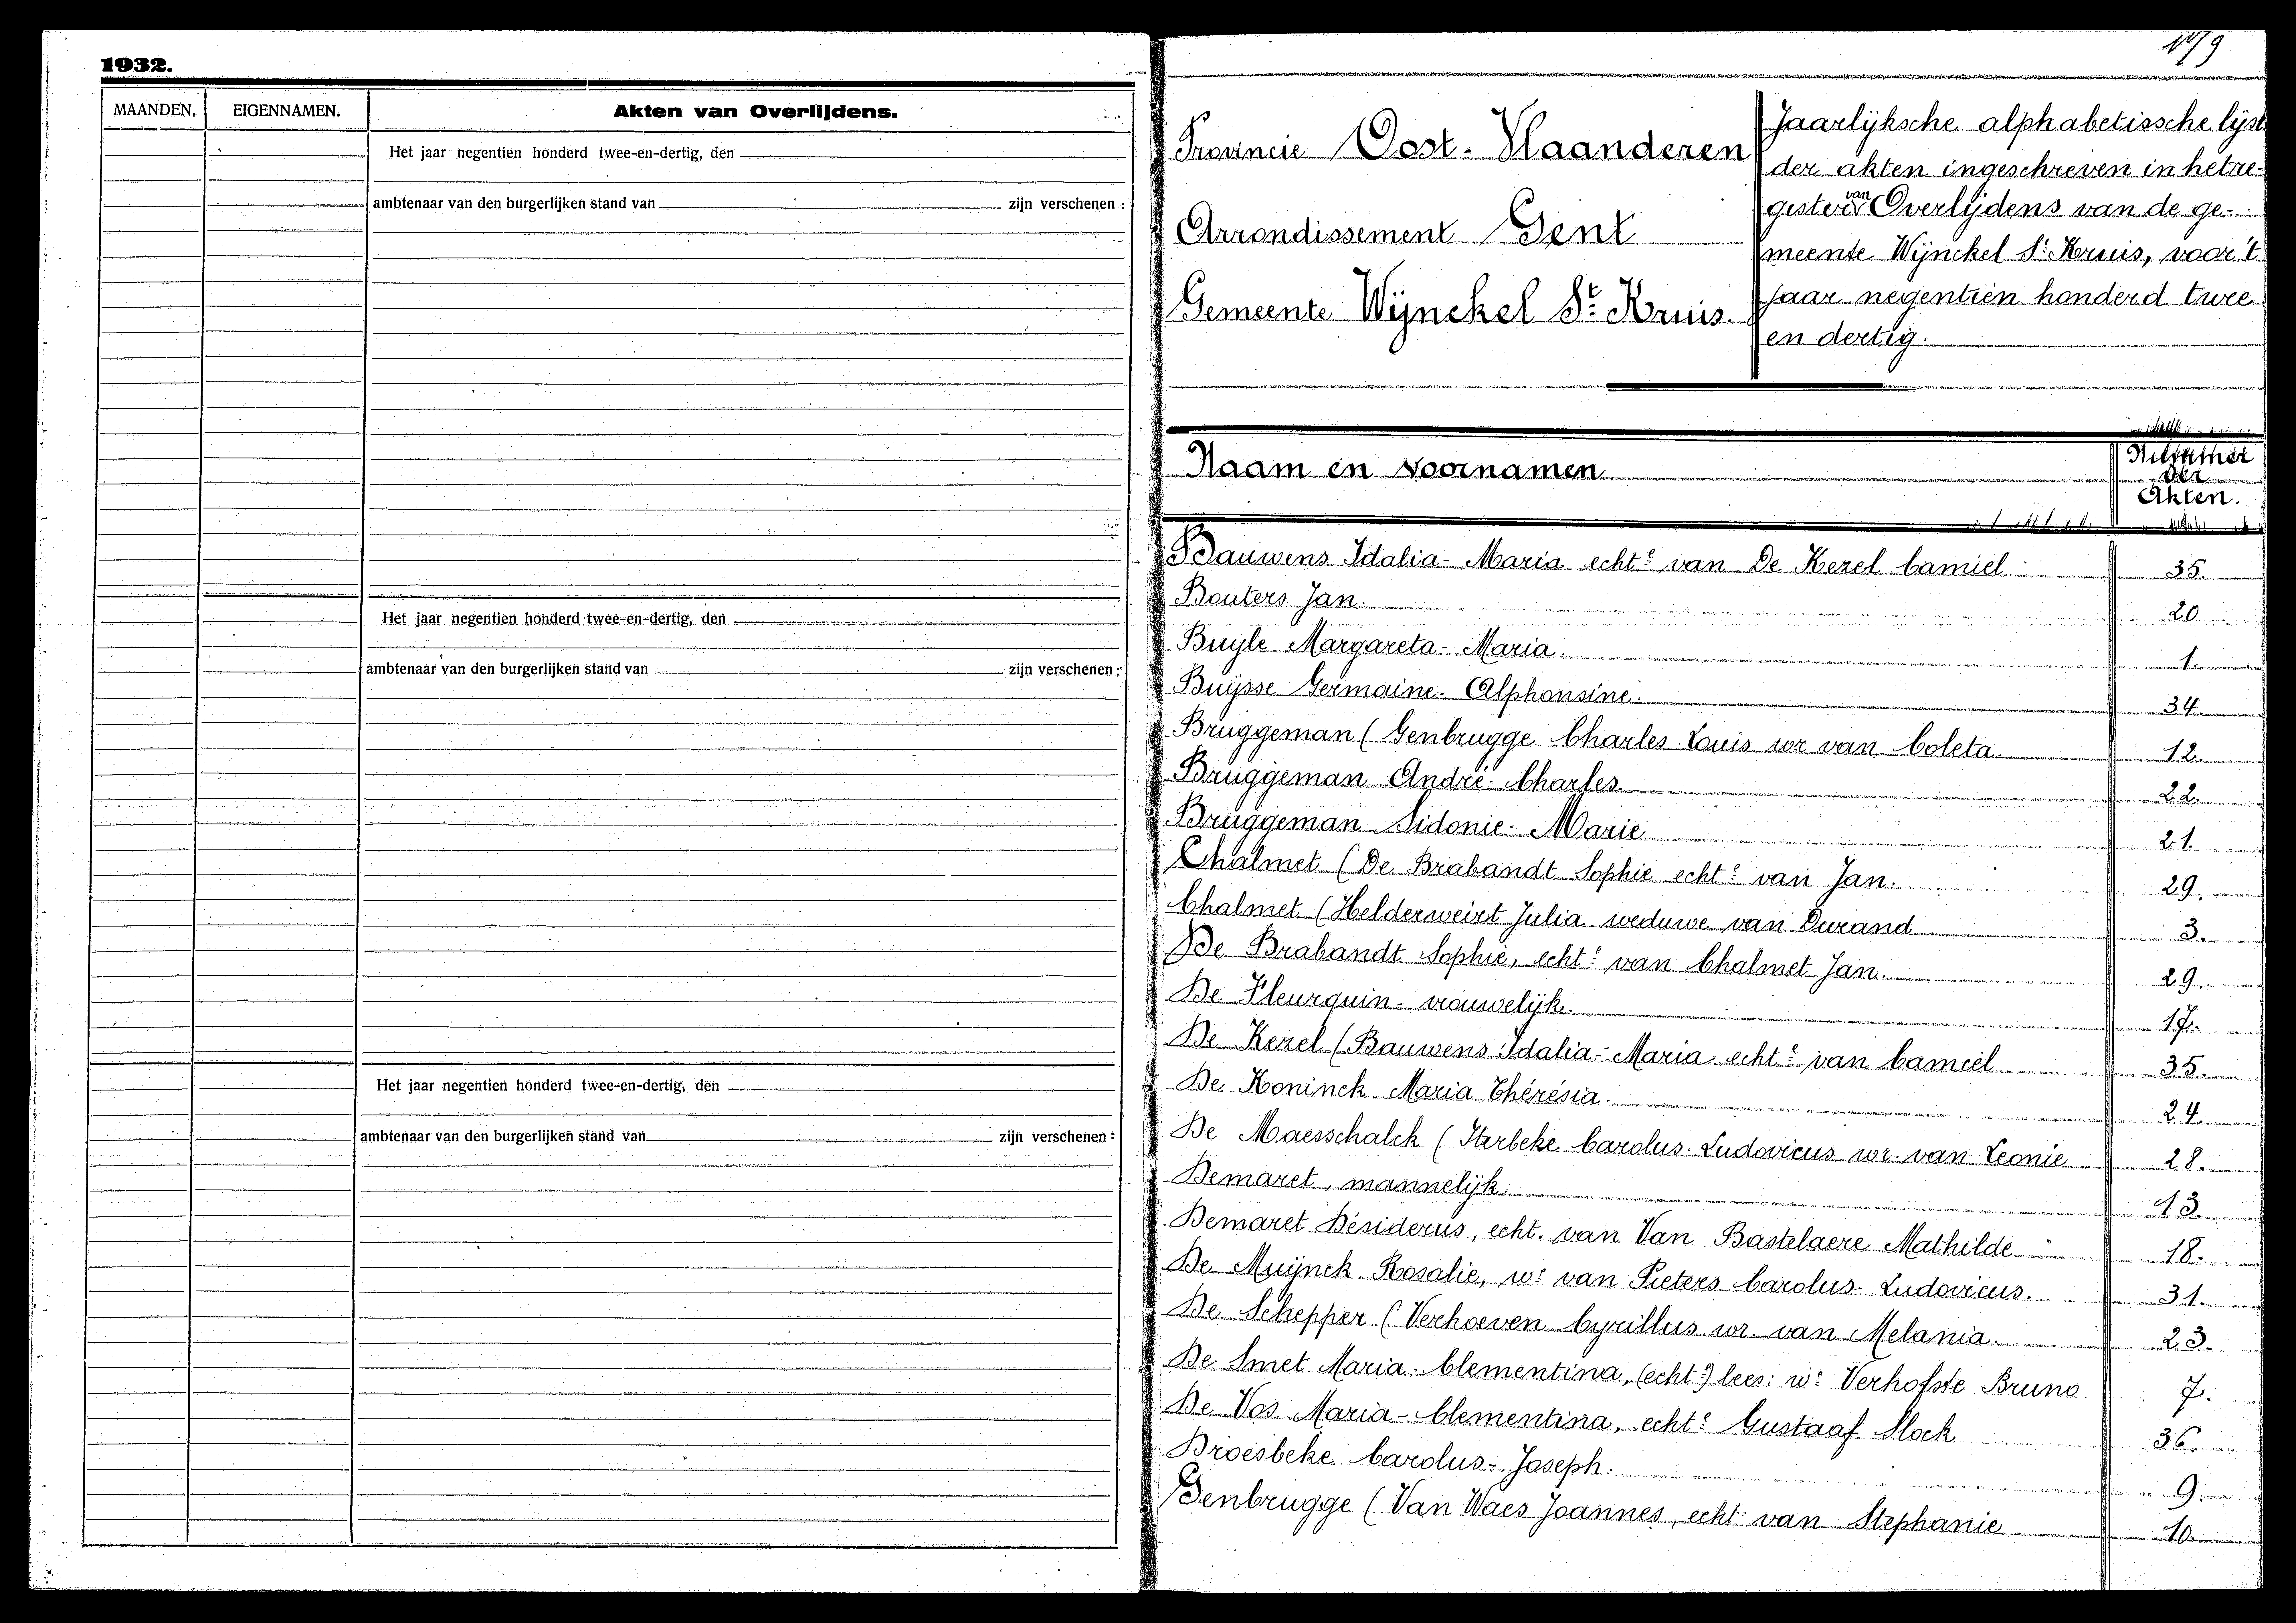 1932.
MAANDEN. EIGENNAMEN. Akten van Overlijdens.
Het jaar negentien honderd twee-en-dertig, den
ambtenaar van den burgerlijken stand van zijn verschenen :
Het jaar negentien honderd twee-en-dertig, den
ambtenaar van den burgerlijken stand van zijn verschenen :
Het jaar negentien honderd twee-en-dertig, den
ambtenaar van den burgerlijken stand van zijn verschenen :
Provincie Oost-Vlaanderen
Arrondissement Gent
Gemeente Wijnckel St Kruis.
Jaarlijksche alphabetissche lijst
der akten ingeschreven in het re-
gister van Overlijdens van de ge-
meente Wijnckel St Kruis, voor 't
jaar negentien honderd twee
en dertig.
Naam en voornamen
der
Akten.
Bauwens Idalia-Maria echte van De Kezel Camiel 35.
Bouters Jan. 20
Buyle Margareta-Maria 1
Buijsse Germaine-Alphonsine. 34
Bruggeman (Genbrugge Charles Louis wr van Coleta 12
Bruggeman André-Charles 22
Bruggeman Sidonie-Marie 21
Chalmet (De Brabandt Sophie echte van Jan. 29.
Chalmet (Helderweirt Julia weduwe van Durand 3.
De Brabandt Sophie, echte van Chalmet Jan. 29.
De Fleurquin-vrouwelijk. 17.
De Kezel (Bauwens Idalia-Maria echte van Camiel 35.
De Koninck Maria Thérésia. 24
De Maesschalck (Sterbeke Carolus-Ludovicus wr. van Leonie 28.
Demaret, mannelijk. 13.
Demaret Désiderus, echt. van Van Bastelaere Mathilde 18.
De Muijnck Rosalie, we van Pieters Carolus-Ludovicus. 31.
De Schepper (Verhoeven Cyrillus wr. van Melania. 23.
De Smet Maria-Clementina, (echte) lees: we Verhofste Bruno 7.
De Vos Maria-Clementina, echte Gustaaf Slock 36.
Droesbeke Carolus-Joseph. 9.
Genbrugge (Van Waes Joannes, echt. van Stephanie 10